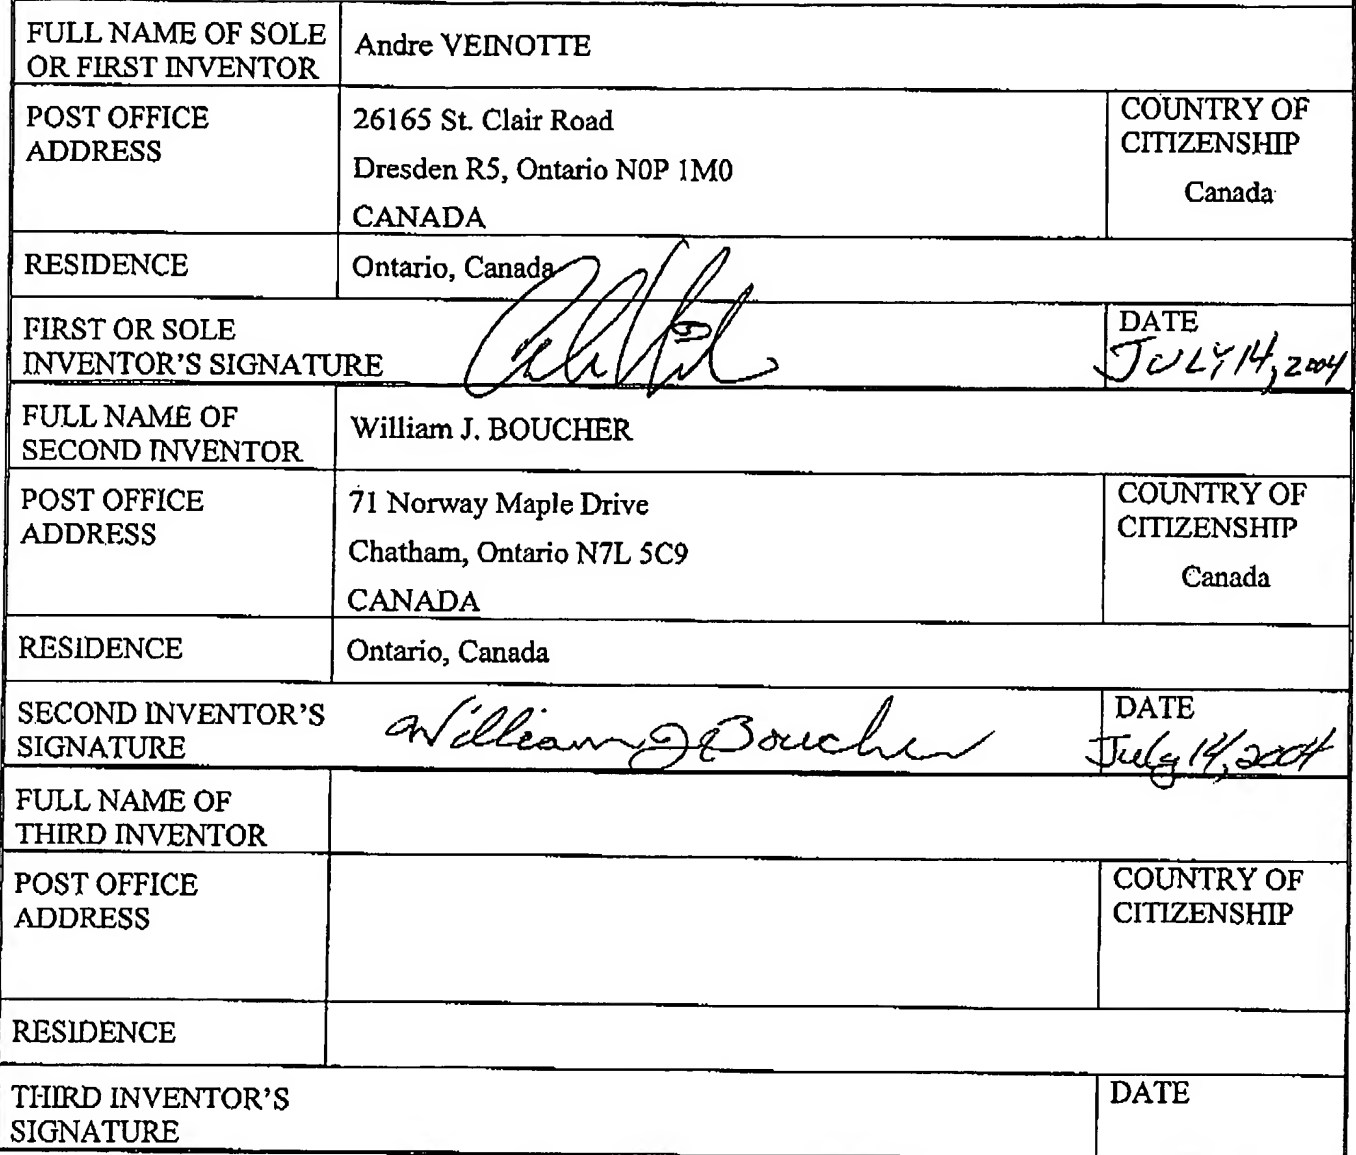 FULL NAME OF SOLE
OR FIRST INVENTOR
Andre VEINOTTE
POST OFFICE
ADDRESS
26165 St. Clair Road
Dresden R5, Ontario N0P 1M0
CANADA
COUNTRY OF
CITIZENSHIP
Canada
RESIDENCE
Ontario, Canada
FIRST OR SOLE
INVENTOR'S SIGNATURE
DATE
JULY 14, 2004
FULL NAME OF
SECOND INVENTOR
William J. BOUCHER
POST OFFICE
ADDRESS
71 Norway Maple Drive
Chatham, Ontario N7L 5C9
CANADA
COUNTRY OF
CITIZENSHIP
Canada
RESIDENCE
Ontario, Canada
SECOND INVENTOR'S
SIGNATURE
William J Boucher
DATE
July 14, 2004
FULL NAME OF
THIRD INVENTOR
POST OFFICE
ADDRESS
COUNTRY OF
CITIZENSHIP
RESIDENCE
THIRD INVENTOR'S
SIGNATURE
DATE